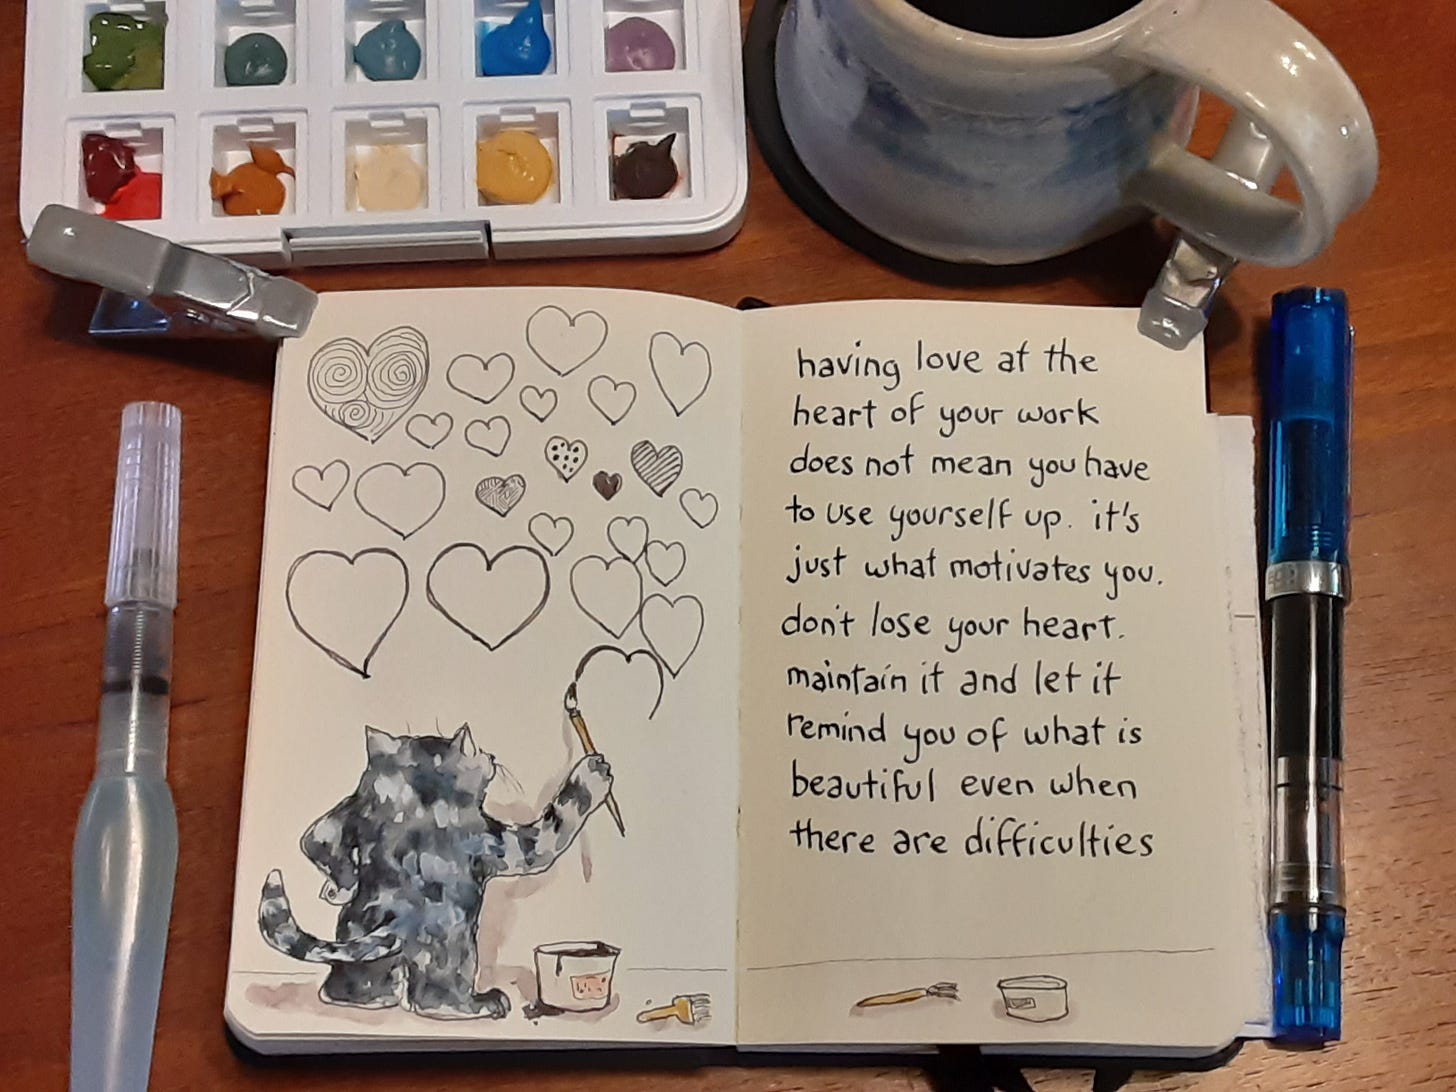 having love at the
heart of your work
does not mean you have
to use yourself up. it's
just what motivates you.
don't lose your heart.
maintain it and let it
remind you of what is
beautiful even when
there are difficulties